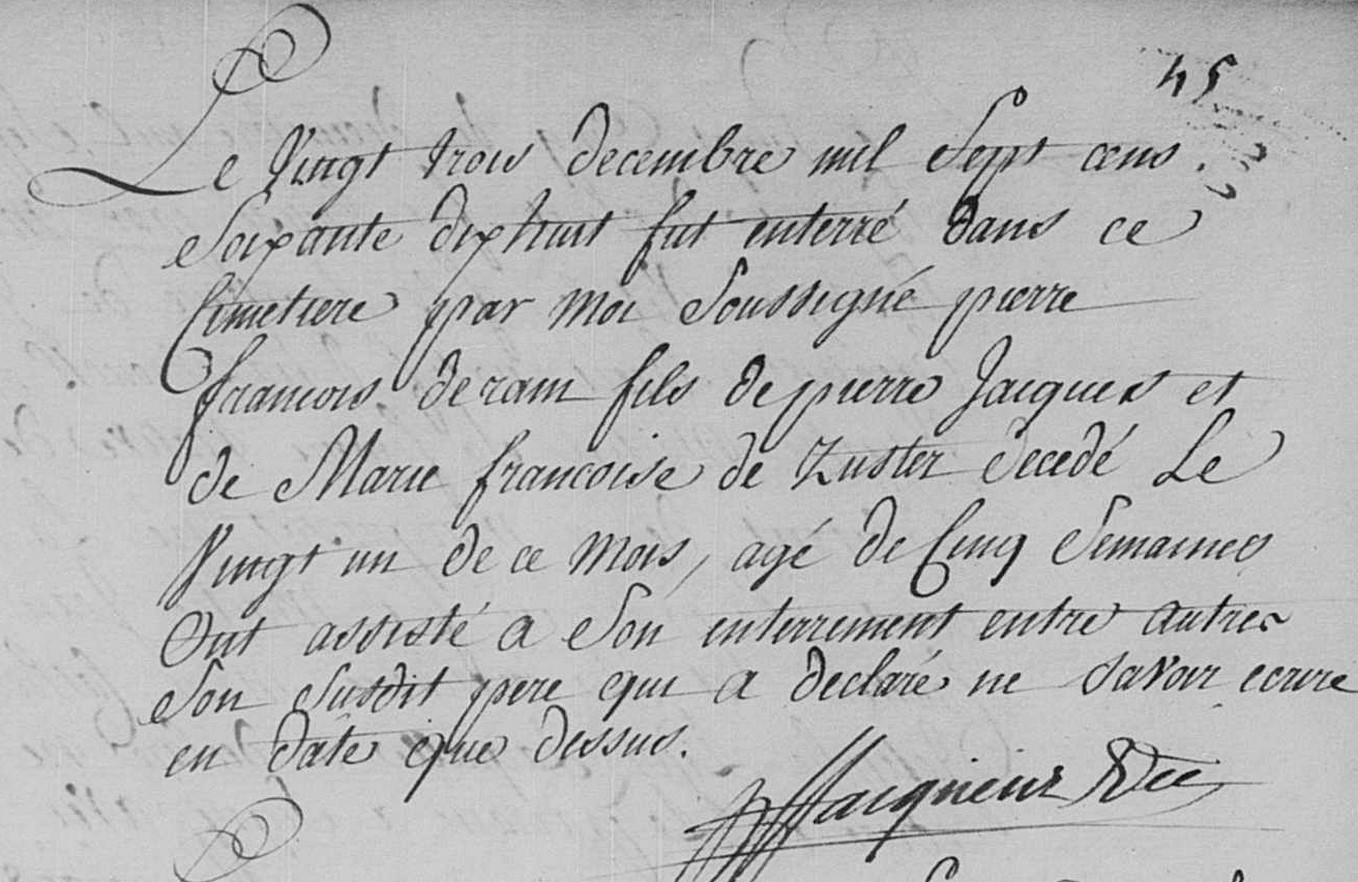 45
Le Vingt trois decembre mil Sept cens
Soixante dixhuit fut enterré dans ce
Cimetiere par moi Soussigné pierre
francois deram fils de pierre Jacques et
de Marie francoise de Zuster decedé Le
Vingt un de ce mois, agé de Cinq Semaines
Ont assisté a Son enterrement entre autres
Son Susdit pere qui a declaré ne savoir ecrire
en date que dessus.